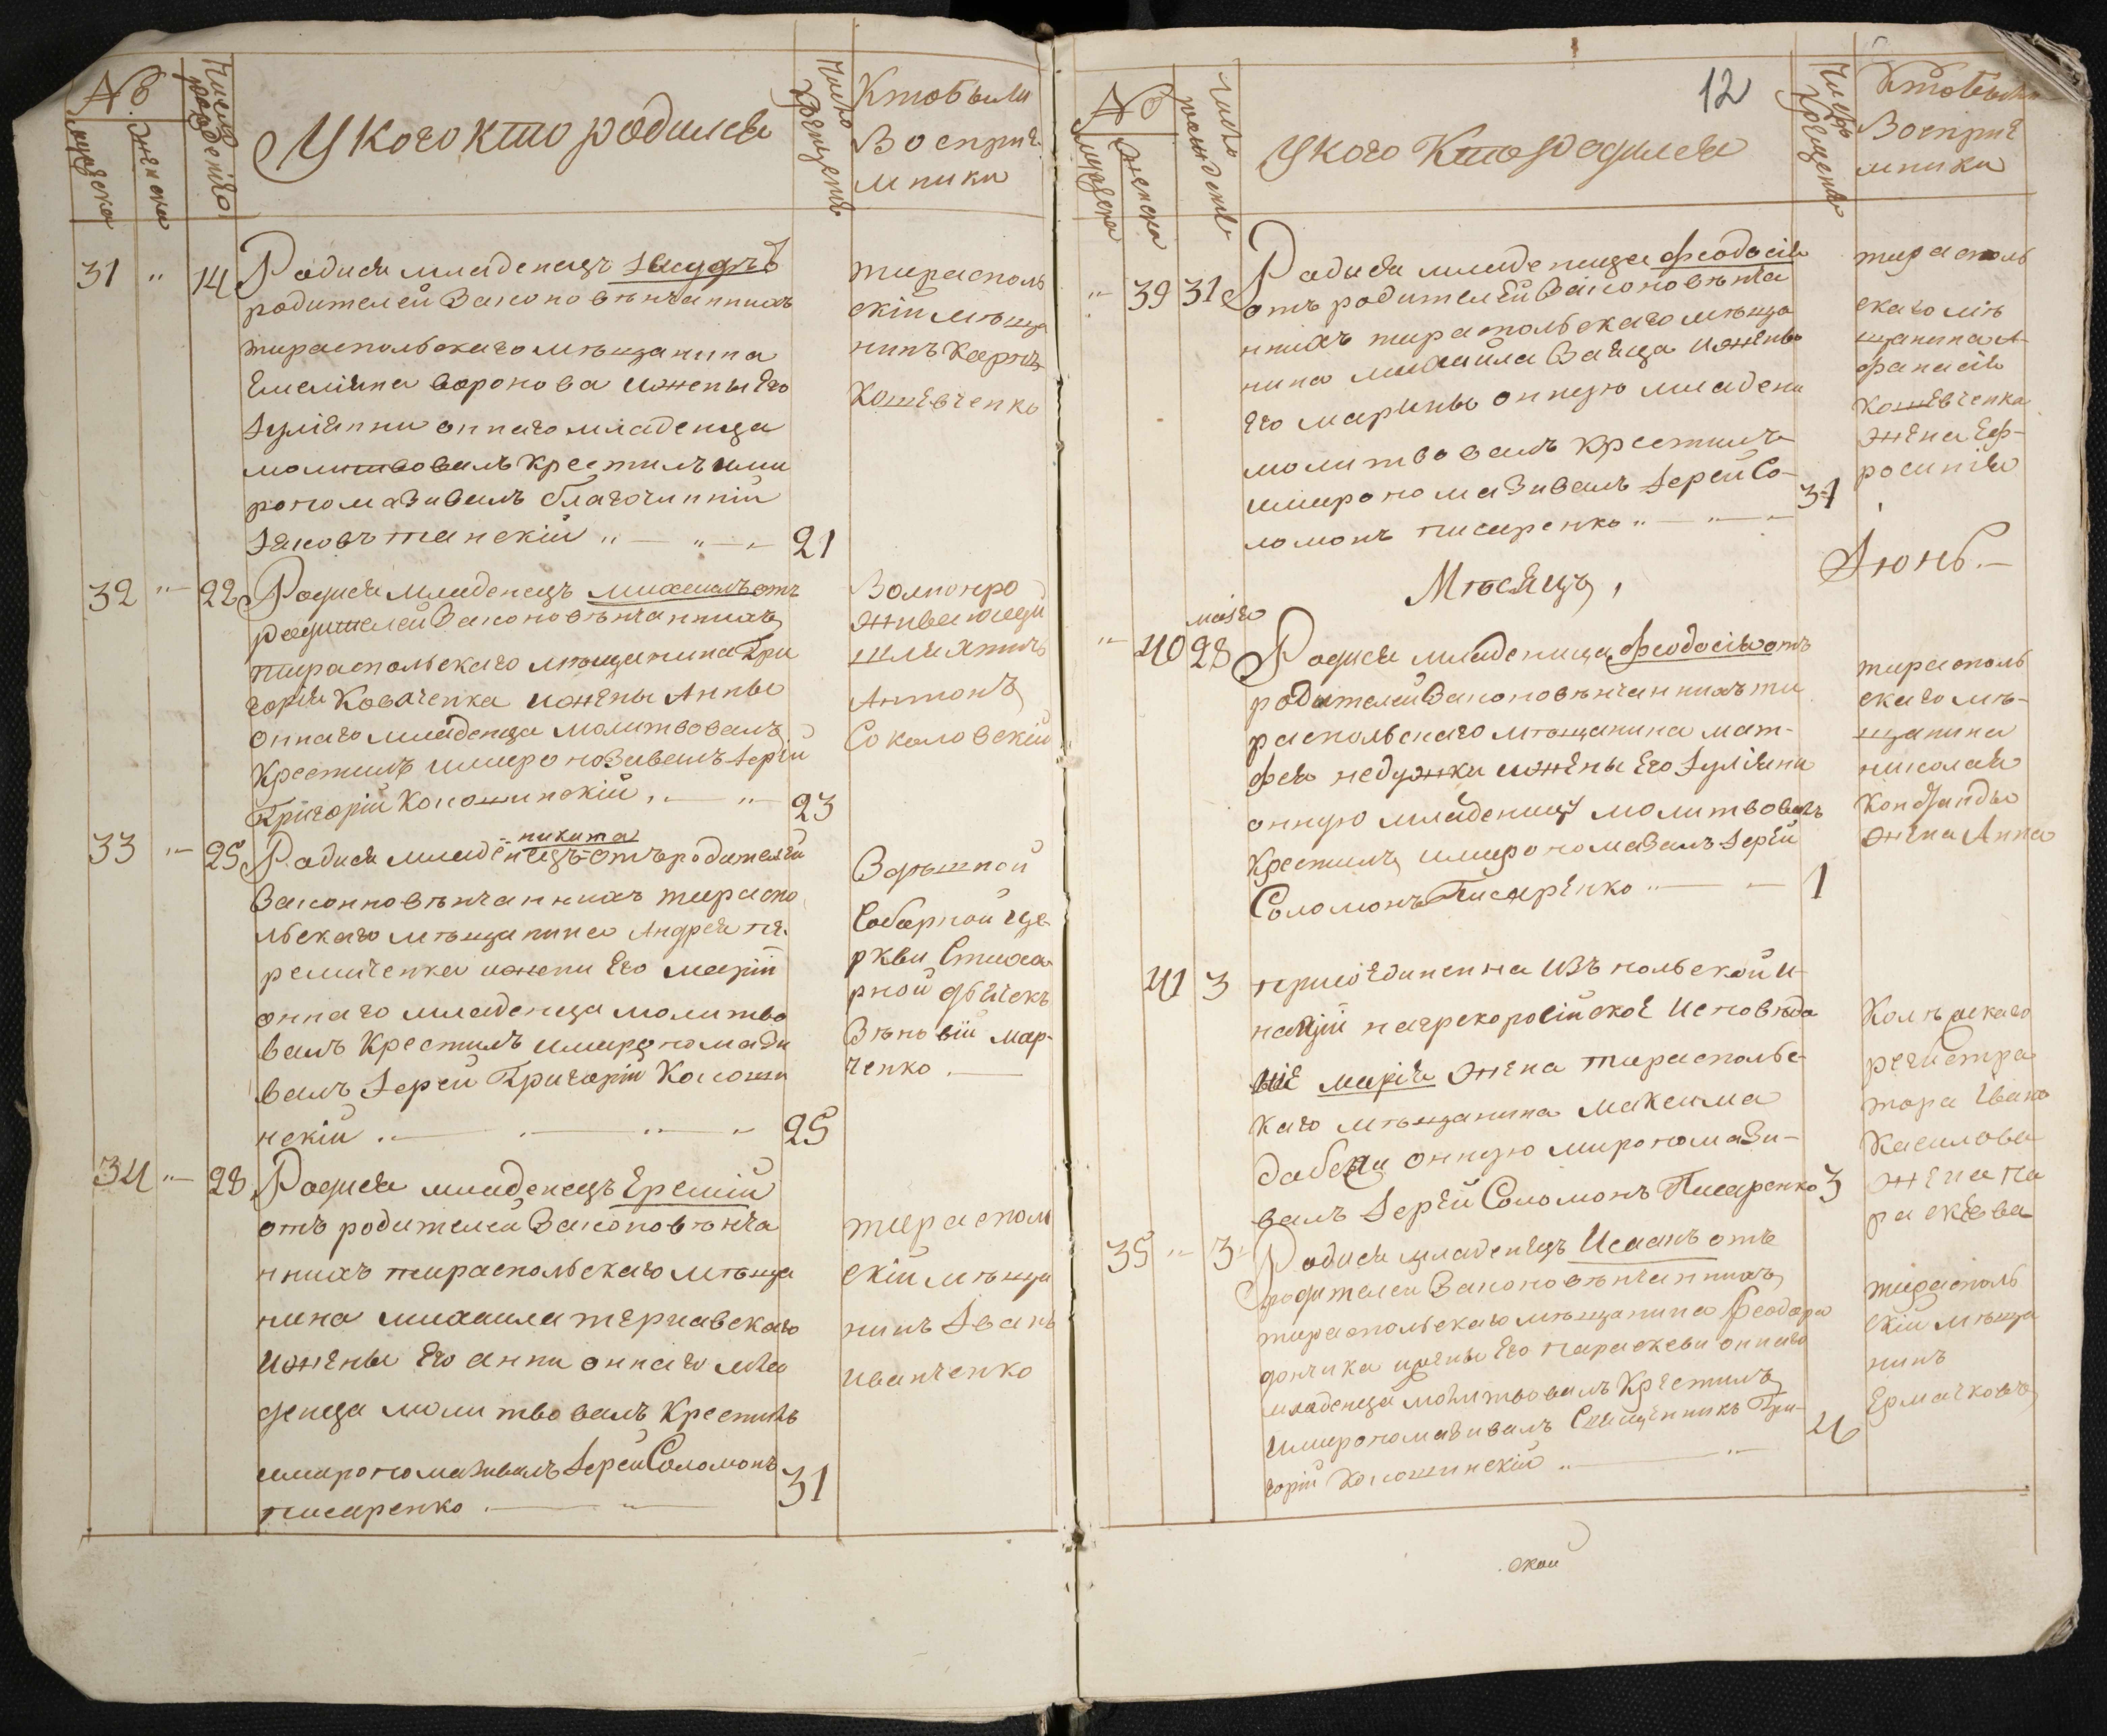 №
мужеска
женска
Число рождения
У кого кто родился
Число крещения
Кто были
Восприе
мники
31 „ 14 Родися младенецъ Исидоръ
родителей Законновѣнчанныхъ
тираспольскаго мѣщанина
Емеліяна воронова и жены Его
Іуліянни оннаго младенца
молитвовалъ крестилъ и ми
ропомазивалъ благочинній
Іаковъ танскій „ — „ — 21
тирасполь
скій мѣща
нинъ Карпъ
Кошевченко
32 „ 22 Родися младенецъ михаилъ отъ
родителей Законовѣнчанныхъ
тираспольскаго мѣщанина Гри
горія Коваченка и жены Анны
оннаго младенца молитвовалъ
Крестилъ и миропозивалъ Іерей
Григорій Колошинскій „ — „ — 23
Волнопро
живающій
шляхтичъ
Антонъ
Соколовскій
33 „ 25 Родися младенецъ никита отъ родителей
Законновѣнчанныхъ тираспо
льскаго мѣщанина Андрея пе
ремиченка и жени Его маріи
оннаго младенца молитво
валъ Крестилъ и миропомази
валъ Іерей Григорій Колоши
нскій . — . — „ — 25
Здѣшной
Соборной це
ркви Стиха
рной дячекъ
Зѣновій мар-
ченко . —
34 „ 28 Родися младенецъ Еремій
отъ родителей Законовѣнча
нныхъ тираспольскаго мѣща
нина михаила тернавскаго
и жены Его анни оннаго мла
денца молитвовалъ Крестилъ
и миропомазивалъ Іерей Соломонъ
писаренко . — „ — 31
тираспол
скій мѣща
нинъ Іванъ
иванченко
12
№
мужеска
женска
Число рожденія
У кого Кто родился
Число крещения
Кто были
Восприе
мники
„ 39 31 Родися младеница феодосія
отъ родителей Законовѣнча
нныхъ тираспольскаго мѣща
нина михайла Заеца и жены
Его марины онную младени
молитвовалъ крестилъ
и миропомазивалъ Іерей Со-
ломонъ писаренко „ — „ — 31
тирасполь
скаго мѣ
щанина А-
фанасія
Кошевченка
жена Еф-
росинія
Мѣсяцъ, Іюнь. —
маія
„ 40 28 Родися младеница феодосія отъ
родителей Законовѣнчанныхъ ти
распольскаго мѣщанина мат-
фея недужки и жены Его Іуліяни
онную младеницу молитвовалъ
Крестилъ и миропомазалъ Іерей
Соломонъ Писаренко „ — 1
тирасполь
скаго мѣ-
щанина
николая
жена Анна
41 3 присоединенна изъ польской и-
націи нагрекоросійское исповѣда
ніе марія жена тираспольс-
каго мѣщанина максима
онную миропомази-
валъ Іерей Соломонъ Писаренко 3
Колѣжскаго
регистра
тора Івана
Касилова
жена Па
раскѣва
35 „ 3 Родися младенецъ Исаакъ отъ
родителей Законовѣнчанныхъ
тираспольскаго мѣщанина Феодора
дончика и жены Его параскеви оннаго
младенца молитвовалъ Крестилъ
и миропомазивалъ Священникъ Гри-
горій Колошинскій „ — „ 4
тирасполь
скій мѣща
нинъ
Ермачковъ
.ской